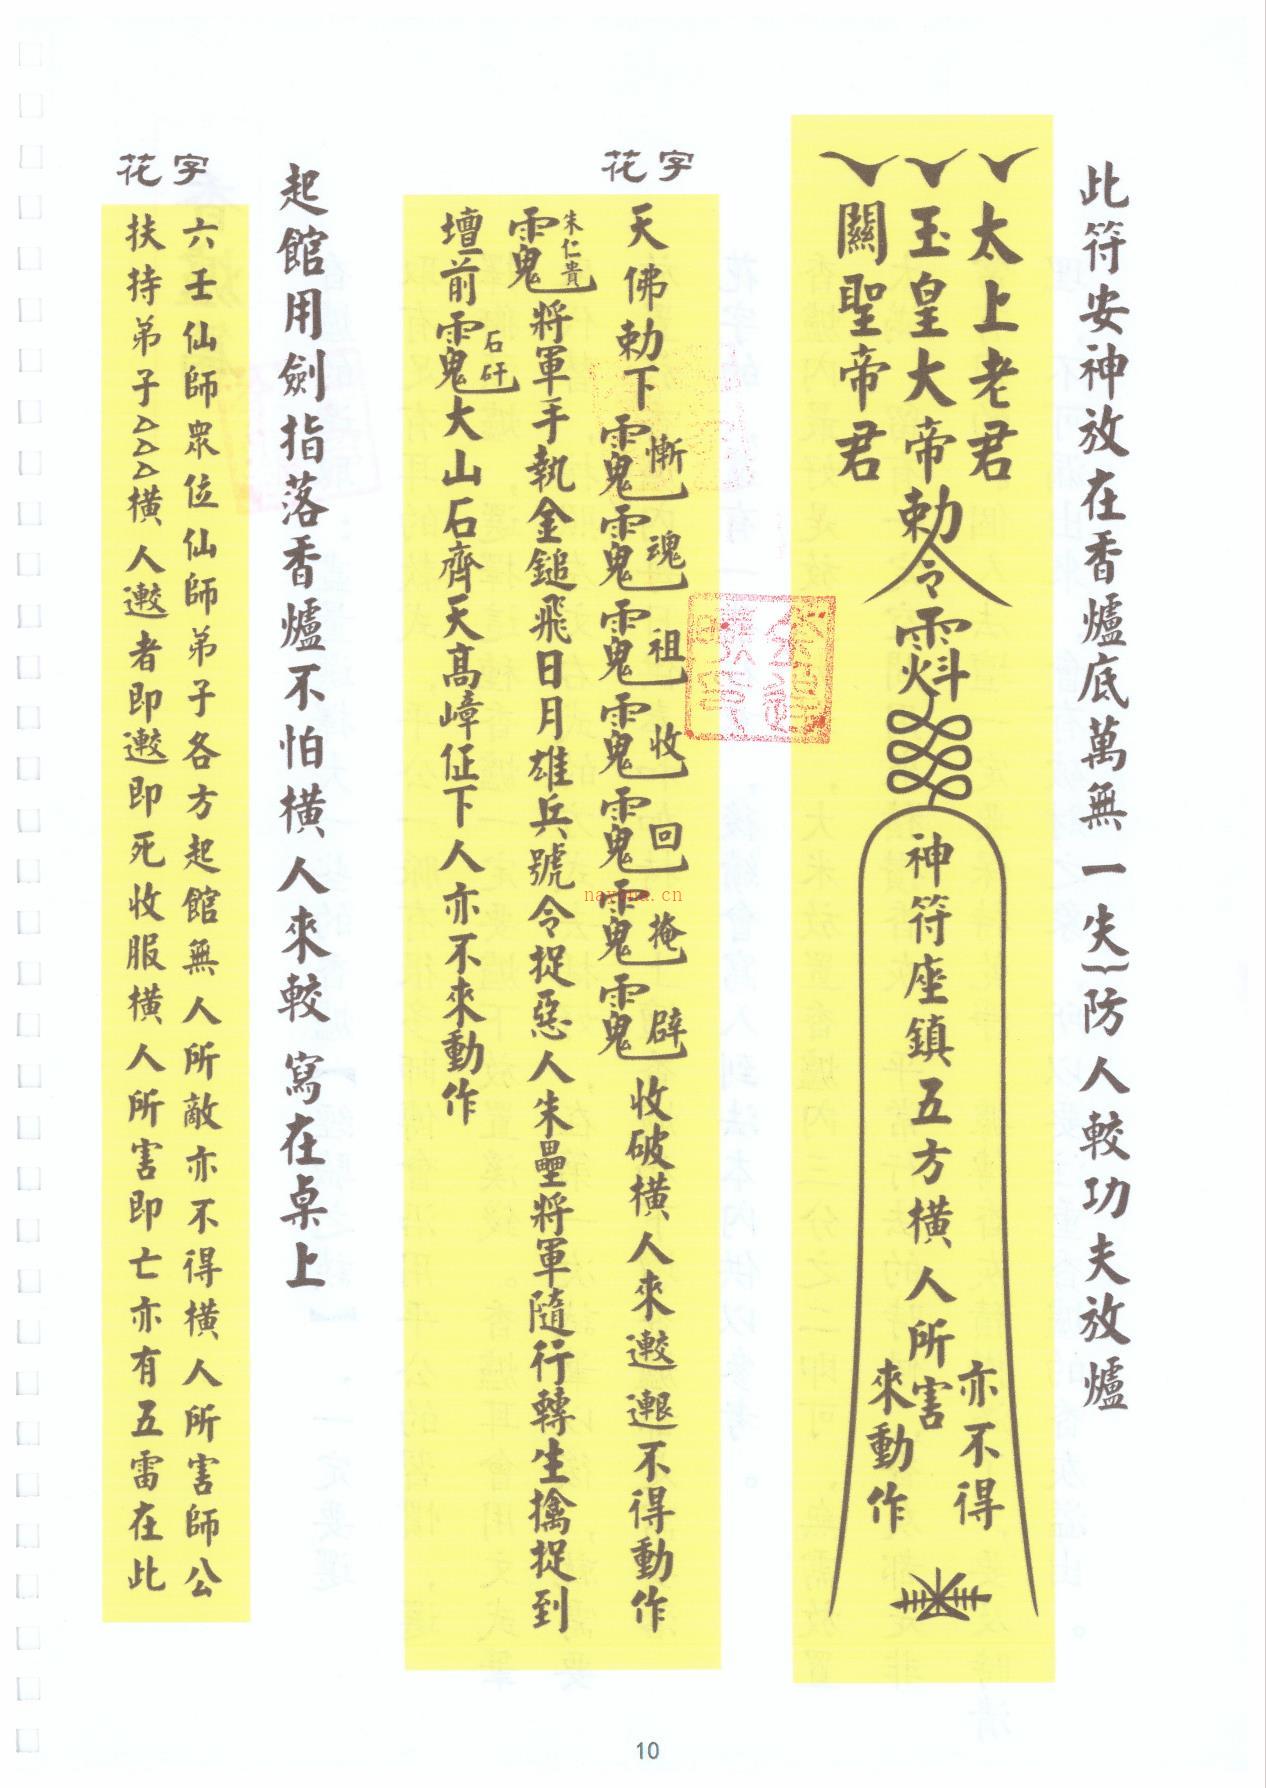 此符安神放在香爐底萬無一失防人較功夫放爐
太上老君
玉皇大帝
關聖帝君
勅令
神符座鎮五方橫人所害
亦不得
來動作
花字
天佛勅下
慚
魂
祖
收
回
掩
辟
收破橫人來
不得動作
朱仁貴
將軍手執金鎚飛日月雄兵號令捉惡人朱壘將軍隨行轉生擒捉到
壇前
石矸
大山石齊天高嶂征下人亦不來動作
起館用劍指落香爐不怕橫人來較 寫在桌上
花字
六壬仙師眾位仙師弟子各方起館無人所敵亦不得橫人所害師公
扶持弟子△△△橫人
者即
即死收服橫人所害即亡亦有五雷在此
nayona.cn
10